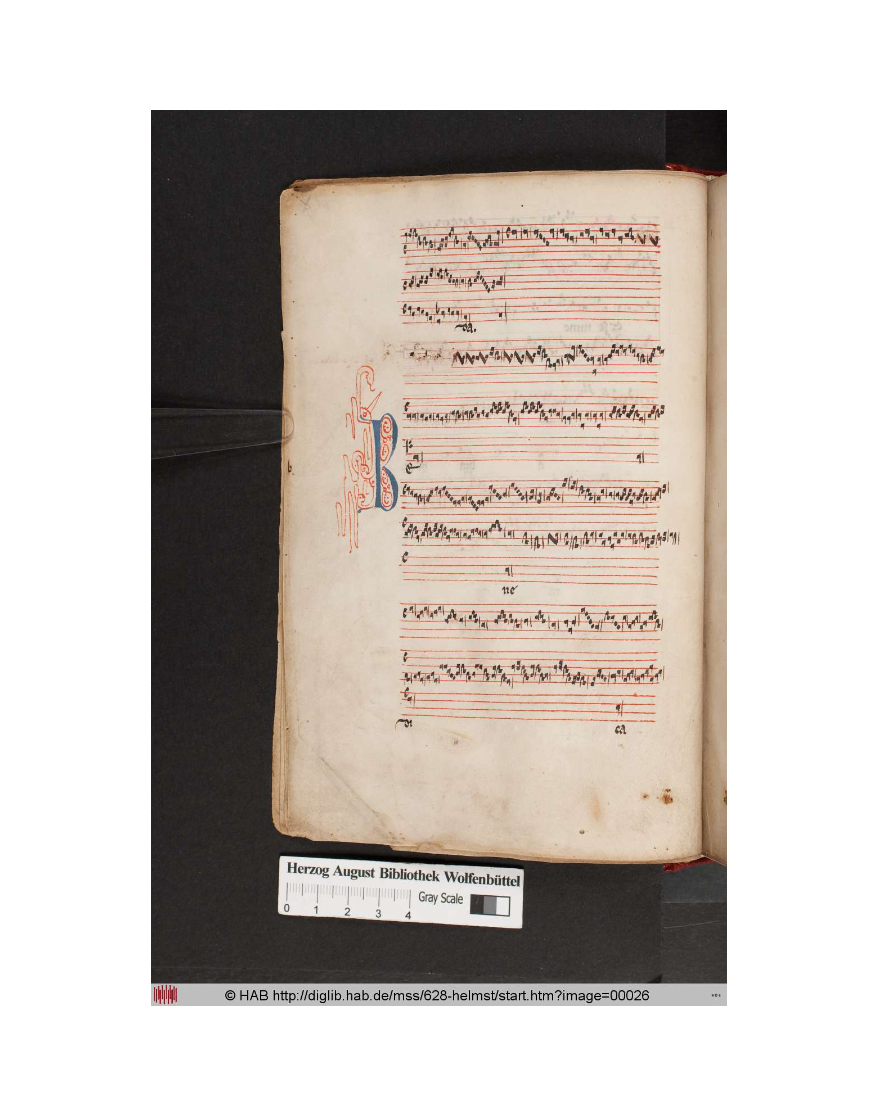 va.
B
e
ne
di
ca
Herzog August Bibliothek Wolfenbüttel
0 1 2 3 4
Gray Scale
© HAB http://diglib.hab.de/mss/628-helmst/start.htm?image=00026